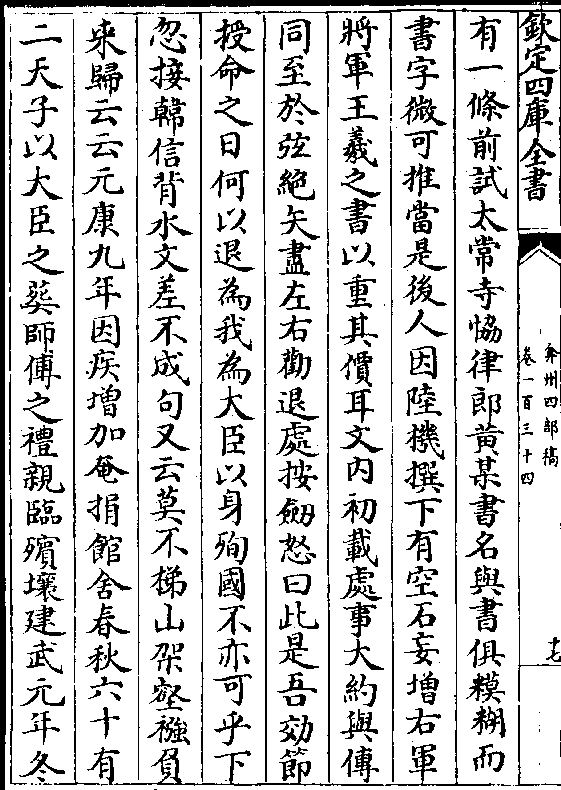 欽定四庫全書
弇州四部稿
卷一百三十四
十七
有一條前試太常寺恊律郎黄某書名與書俱糢糊而
書字微可推當是後人因陸機撰下有空石妄增右軍
將軍王羲之書以重其價耳文内初載處事大約與傳
同至於弦絶矢盡左右勸退處按劒怒曰此是吾効節
授命之日何以退為我為大臣以身殉國不亦可乎下
忽接韓信背水文差不成句又云莫不梯山架壑襁負
来歸云云元康九年因疾增加奄捐館舍春秋六十有
二天子以大臣之葬師傅之禮親臨殯壤建武元年冬